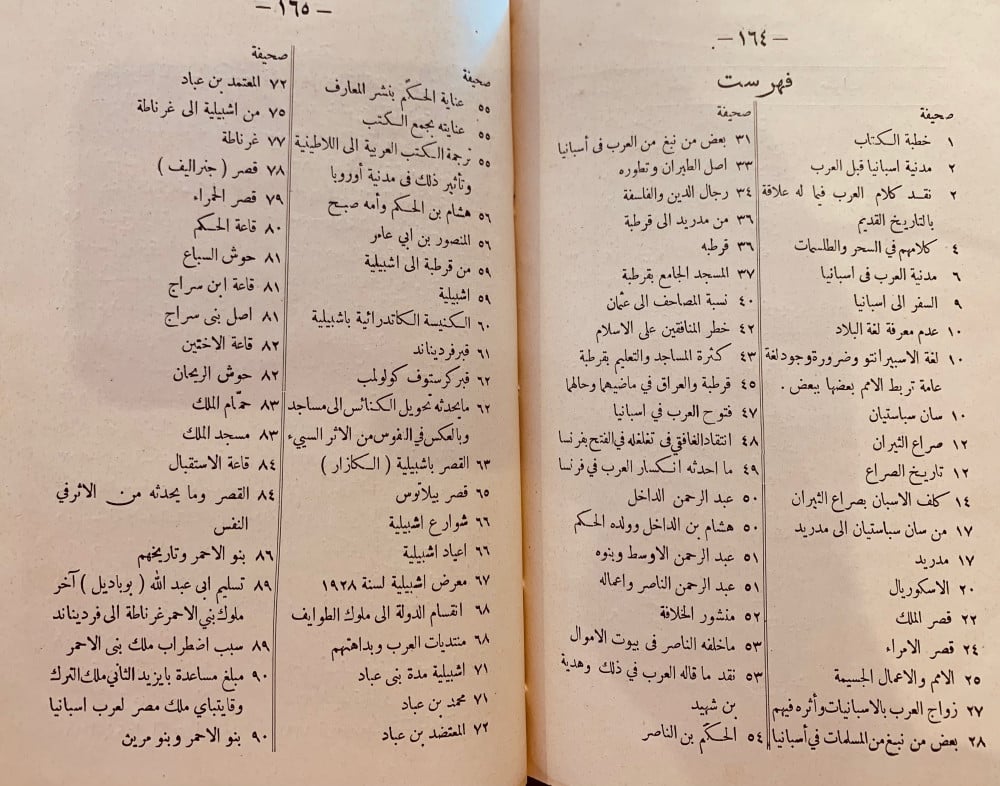 — ١٦٤ —
فهرست
صحيفة
١ خطبة الكتاب
٢ مدنية اسبانيا قبل العرب
٢ نقد كلام العرب فيما له علاقة
بالتاريخ القديم
٤ كلامهم في السحر والطلسمات
٦ مدنية العرب فى اسبانيا
٩ السفر الى اسبانيا
١٠ عدم معرفة لغة البلاد
١٠ لغة الاسبيرانتو وضرورة وجود لغة
عامة تربط الامم بعضها ببعض .
١٠ سان سباستيان
١٢ صراع الثيران
١٢ تاريخ الصراع
١٤ كلف الاسبان بصراع الثيران
١٧ من سان سباستيان الى مدريد
١٧ مدريد
٢٠ الاسكوريال
٢٢ قصر الملك
٢٤ قصر الامراء
٢٥ الامم والاعمال الجسيمة
٢٧ زواج العرب بالاسبانيات وأثره فيهم
٢٨ بعض من نبغ من المسلمات في أسبانيا
صحيفة
٣١ بعض من نبغ من العرب فى أسبانيا
٣٣ اصل الطيران وتطوره
٣٤ رجال الدين والفلسفة
٣٦ من مدريد الى قرطبة
٣٦ قرطبه
٣٧ المسجد الجامع بقرطبة
٤٠ نسبة المصاحف الى عثمان
٤٢ خطر المنافقين على الاسلام
٤٣ كثرة المساجد والتعليم بقرطبة
٤٥ قرطبة والعراق في ماضيهما وحالهما
٤٧ فتوح العرب في اسبانيا
٤٨ انتقاد الغافقي في تغلغله في الفتح بفرنسا
٤٩ ما احدثه انكسار العرب في فرنسا
٥٠ عبد الرحمن الداخل
٥٠ هشام بن الداخل وولده الحكم
٥١ عبد الرحمن الاوسط وبنوه
٥١ عبد الرحمن الناصر واعماله
٥٢ منشور الخلافة
٥٣ ماخلفه الناصر فى بيوت الاموال
٥٣ نقد ما قاله العرب في ذلك وهدية
بن شهيد
٥٤ الحكم بن الناصر
— ١٦٥ —
صحيفة
٥٥ عناية الحكم بنشر المعارف
٥٥ عنايته بجمع الكتب
٥٥ ترجمة الكتب العربية الى اللاطينية
وتأثير ذلك فى مدنية أوروبا
٥٦ هشام بن الحكم وأمه صبح
٥٦ المنصور بن ابي عامر
٥٩ من قرطبة الى اشبيلية
٥٩ اشبيلية
٦٠ الكنيسة الكاتدرائية باشبيلية
٦١ قبر فرديناند
٦٢ قبر كرستوف كولولمب
٦٢ مايحدثه تحويل الكنائس الى مساجد
وبالعكس في النفوس من الاثر السيء
٦٣ القصر باشبيلية ( الكازار )
٦٥ قصر بيلاتوس
٦٦ شوارع اشبيلية
٦٦ اعياد اشبيلية
٦٧ معرض اشبيلية لسنة ١٩٢٨
٦٨ انقسام الدولة الى ملوك الطوايف
٦٨ منتديات العرب وبداهتهم
٧١ اشبيلية مدة بنى عباد
٧١ محمد بن عباد
٧٢ المعتضد بن عباد
صحيفة
٧٢ المعتمد بن عباد
٧٥ من اشبيلية الى غرناطة
٧٧ غرناطة
٧٨ قصر ( جنراليف )
٧٩ قصر الحمراء
٨٠ قاعة الحكم
٨١ حوش السباع
٨١ قاعة ابن سراج
٨١ اصل بنى سراج
٨٢ قاعة الاختين
٨٢ حوش الريحان
٨٣ حمّام الملك
٨٣ مسجد الملك
٨٤ قاعة الاستقبال
٨٤ القصر وما يحدثه من الاثر في
النفس
٨٦ بنو الاحمر وتاريخهم
٨٩ تسليم ابى عبد الله ( بوباديل ) آخر
ملوك بني الاحمر غرناطة الى فرديناند
٨٩ سبب اضطراب ملك بنى الاحمر
٩٠ مبلغ مساعدة بايزيد الثاني ملك الترك
وقايتباي ملك مصر لعرب اسبانيا
٩٠ بنو الاحمر وبنو مرين